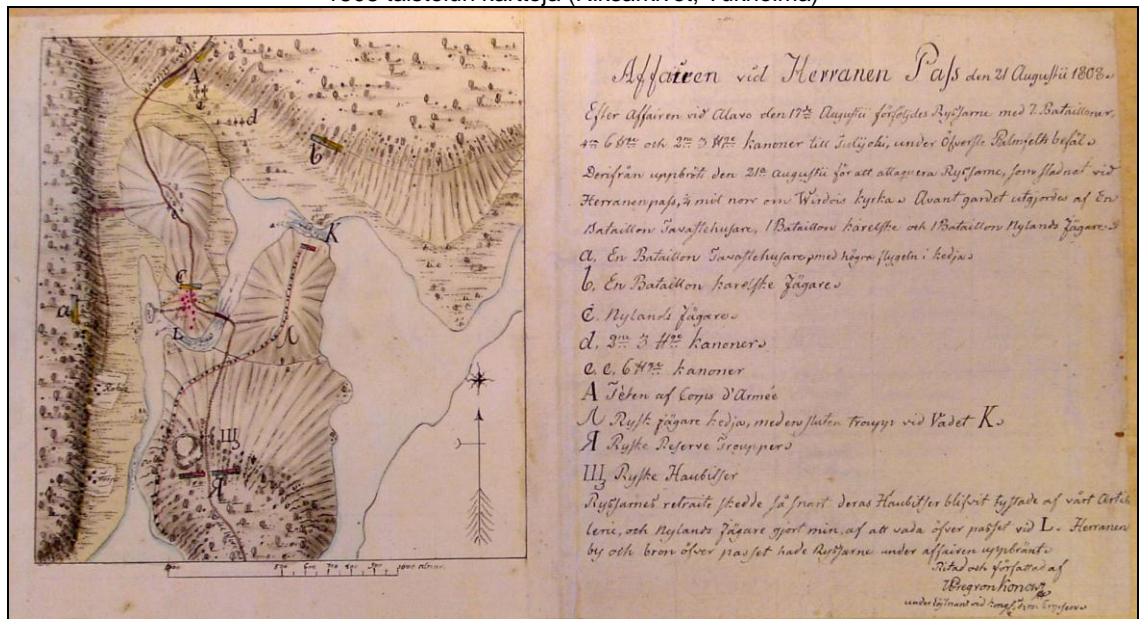 1808 taistelun karttoja (Riksarkivet, Tukholma)
A
d
b
K
e
C
a
L
Л
Щ
Я
Affairen vid Herranen Pass den 21 Augustii 1808.
Efter Affairen vid Alavo den 17de Augustii förföljdes Ryssarne med 7 Batailloner,
och kanoner till under Öfverste Palmfelts befäl.
Derifrån uppbröts den 21a Augustii för att attaquera Ryssarne, som stadnat vid
Herranenpass, 1/4 mil norr om Wirdois kyrka. Avant gardet utgjordes af En
Bataillon Tavastehusare, 1 Bataillon Karelske och 1 Bataillon Nylands Jägare.
a. En Bataillon Tavastehusare, med högra flygeln i kedja.
b. En Bataillon Karelske Jägare.
c. Nylands Jägare.
d. kanoner.
e. e. kanoner
A Têten af Corps d'Armée
Л Rysk jägare kedja, med en sluten troupp vid Vadet K.
Я Ryske Reserve Troupper.
Щ Ryske Haubitser
Ryssarnes retraite skedde så snart deras Haubitser blifvit tystade af vårt Artil
lerie, och Nylands Jägare gjort min, af att vada öfver passet vid L. Herranen
by och bron öfver passet hade Ryssarne under affairen uppbränt.
Ritad och författad af